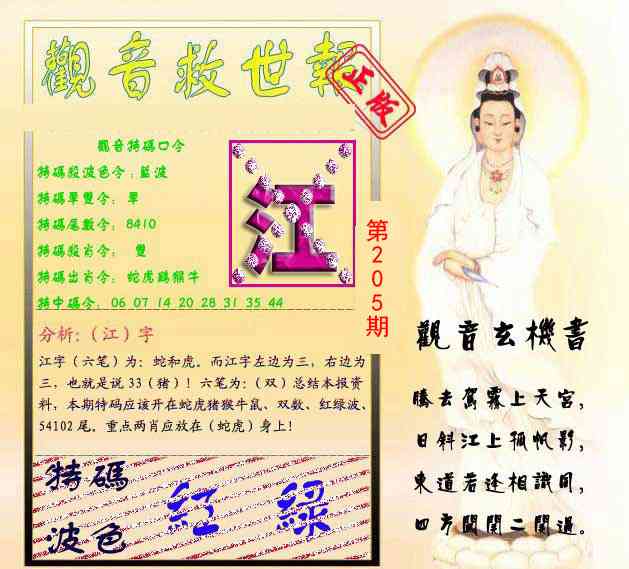 觀音救世報
正版
觀音特碼口令
特碼殺波色令：藍波
特碼單雙令： 單
特碼尾數令： 8410
特碼殺肖令： 雙
特碼出肖令： 蛇虎鷄猴牛
特中碼令： 06 07 14 20 28 31 35 44
江
第205期
分析:（江）字
江字（六笔）为：蛇和虎。而江字左边为三，右边为
三，也就是说 33（猪）！六笔为：（双）总结本报资
料，本期特码应该开在蛇虎猪猴牛鼠、双数、红绿波、
54102 尾。重点两肖应放在（蛇虎）身上！
特碼
波色
紅 綠
觀音玄機書
騰去駕霧上天宮，
日斜江上孤帆影，
東道若逢相識問，
四方開門二開過。